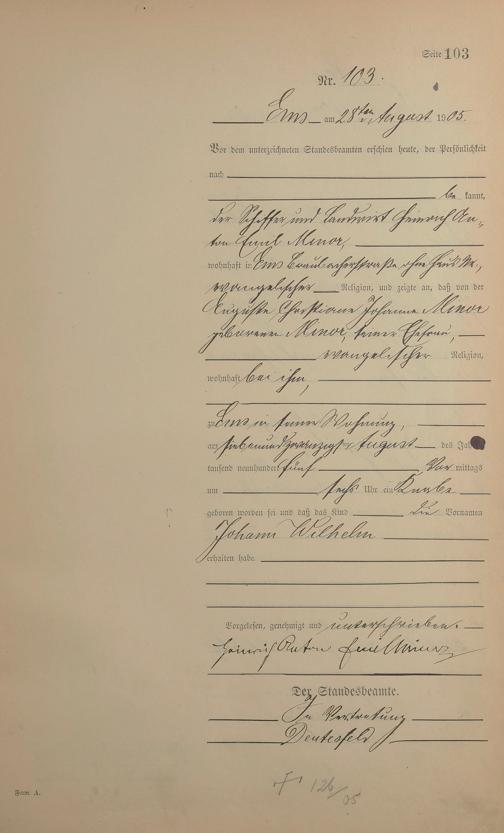 Seite 103
Nr. 103.
Ems am 28ten August 1905.
Vor dem unterzeichneten Standesbeamten erschien heute, der Persönlichkeit
nach
be kannt,
der Schiffer und Landwirt Heinrich An-
ton Emil Minor,
wohnhaft in Ems Braubacherstraße ohne Haus Nr.,
evangelischer Religion, und zeigte an, daß von der
Auguste Christiane Johanne Minor
geborenen Minor, seiner Ehefrau,
evangelischer Religion,
wohnhaft bei ihm,
zu Ems in seiner Wohnung,
am siebenundzwanzigsten August des Jah
tausend neunhundert fünf Vor mittags
um sechs Uhr ein Knabe
geboren worden sei und daß das Kind die Vornamen
Johann Wilhelm
erhalten habe
Vorgelesen, genehmigt und unterschrieben.
Heinrich Anton Emil Minor
Der Standesbeamte.
In Vertretung
Form A.